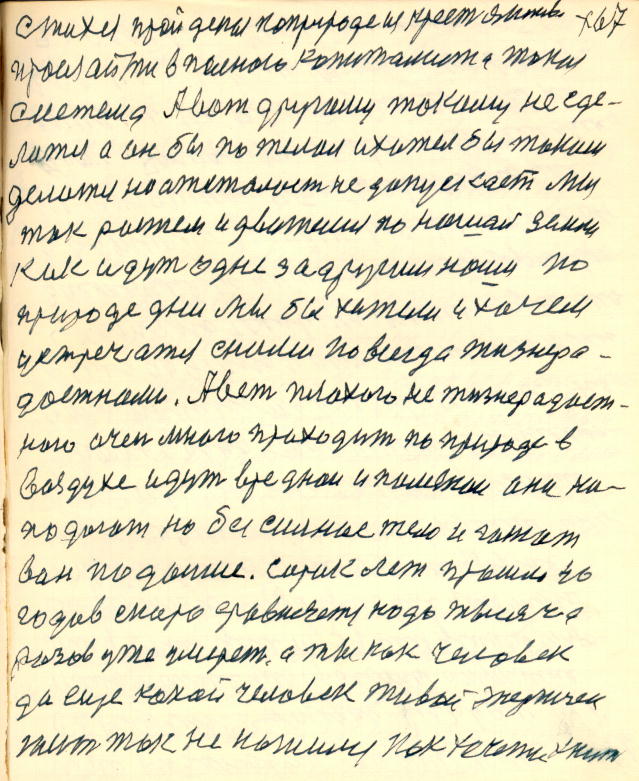 стихея пройденая по природе и крест живы 267
проидти в полного капитализма такая
система А вот другому такому не сде-
лался а он бы по желал и хотел бы таким
делатся но отсталост не допускает Мы
так ростем и движемся по нашай земли
Как идут одне за другим наши по
природе дни Мы бы хатели и хочем
встречатся сними по всегда жизнера-
достными. А вот плохого не жизнерадост-
ного очен много проходит по природе в
воздухе идут вредной и полезной они на-
подают на бессилное тело и гонют
вам по далше. Сорак лет прошло
годов скоро надо тысяча
разов уже умерет. а ты как человек
да еще какой человек живой энергичен
так не